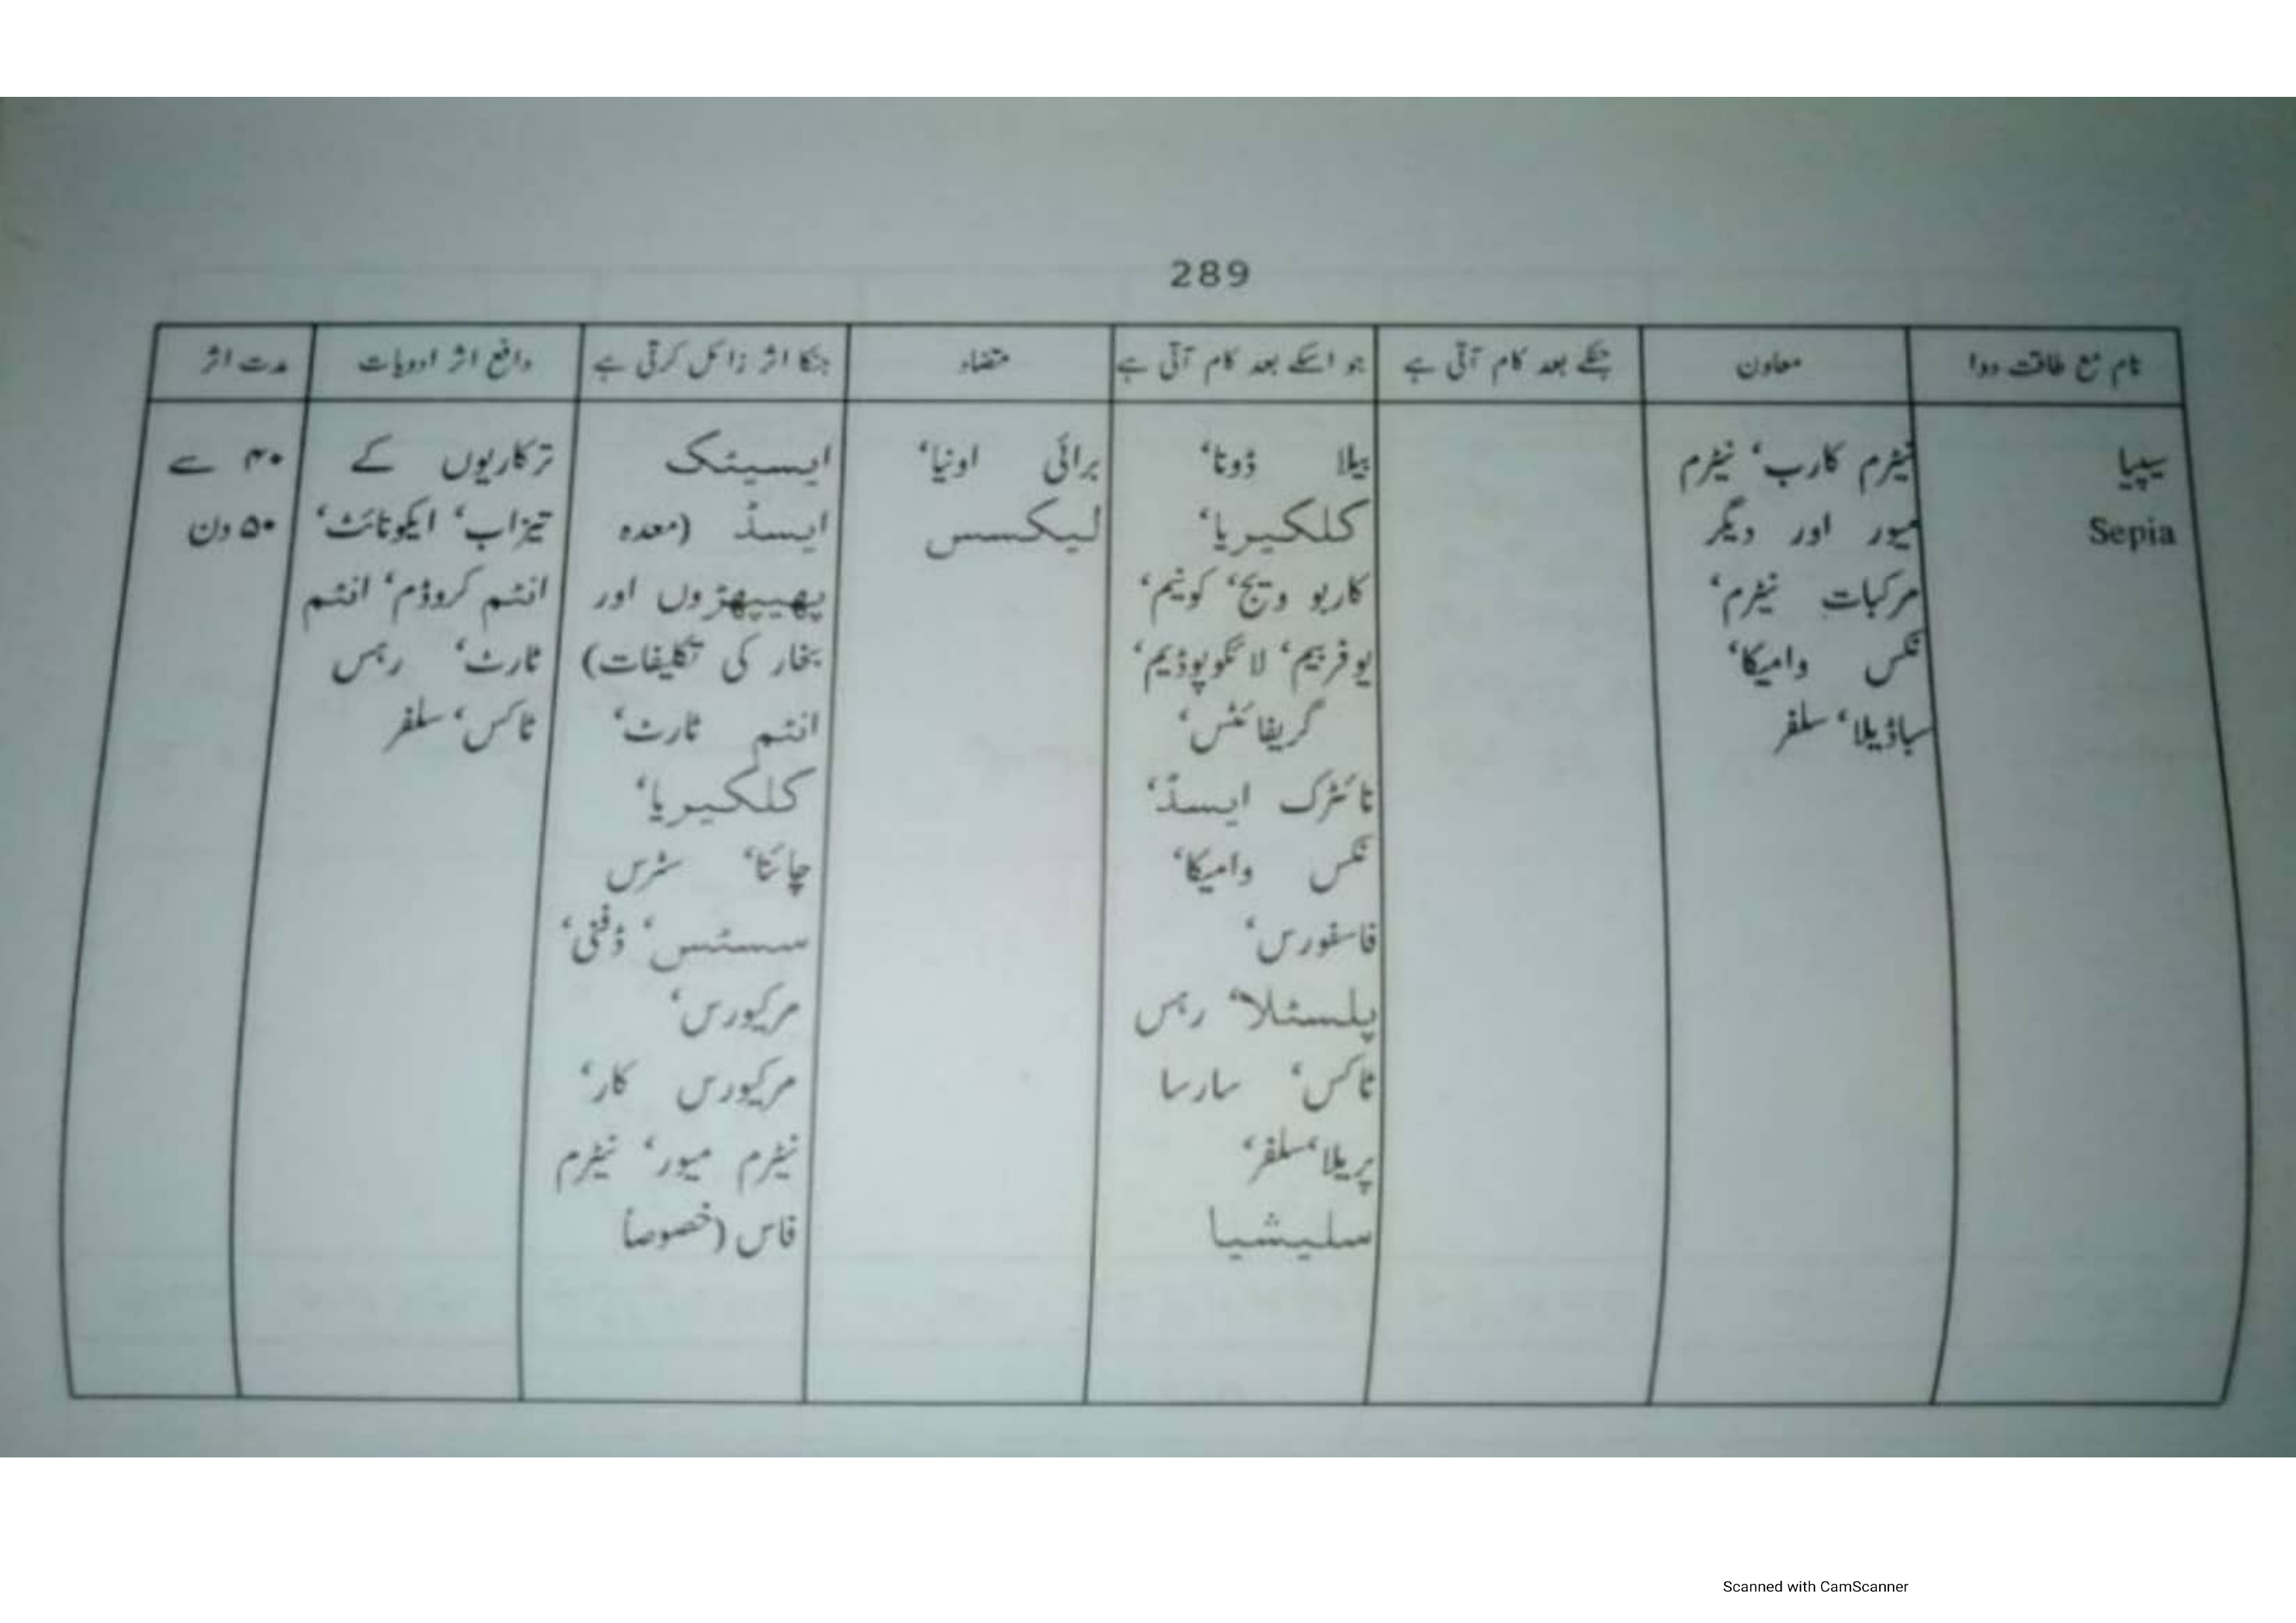 289
نام مع طاقت دوا
معاون
جسکے بعد کام آتی ہے
جو اسکے بعد کام آتی ہے
متضاد
جنکا اثر زائل کرتی ہے
دافع اثر ادویات
مدت اثر
سیپیا
Sepia
نیٹرم کارب، نیٹرم
میور اور دیگر
مرکبات نیٹرم،
نکس وامیکا،
سباڈیلا، سلفر
بیلا ڈونا،
کلکیریا،
کاربو ویج، کونیم،
یوفربیم، لائکوپوڈیم،
گریفائٹس،
نائٹرک ایسڈ،
نکس وامیکا،
فاسفورس،
پلسٹلا، رہس
ٹاکس، سارسا
پریلا، سلفر،
سلیشیا
برائی اونیا،
لیکسس
ایسیٹک
ایسڈ (معدہ
پھیپھڑوں اور
بخار کی تکلیفات)
انٹم ٹارٹ،
کلکیریا،
چائنا، سٹرس
سسٹس، ڈفنی،
مرکیورس،
مرکیورس کار،
نیٹرم میور، نیٹرم
فاس (خصوصاً
ترکاریوں کے
تیزاب، ایکونائٹ،
انٹم کروڈم، انٹم
ٹارٹ، رہس
ٹاکس، سلفر
۴۰ سے
۵۰ دن
Scanned with CamScanner